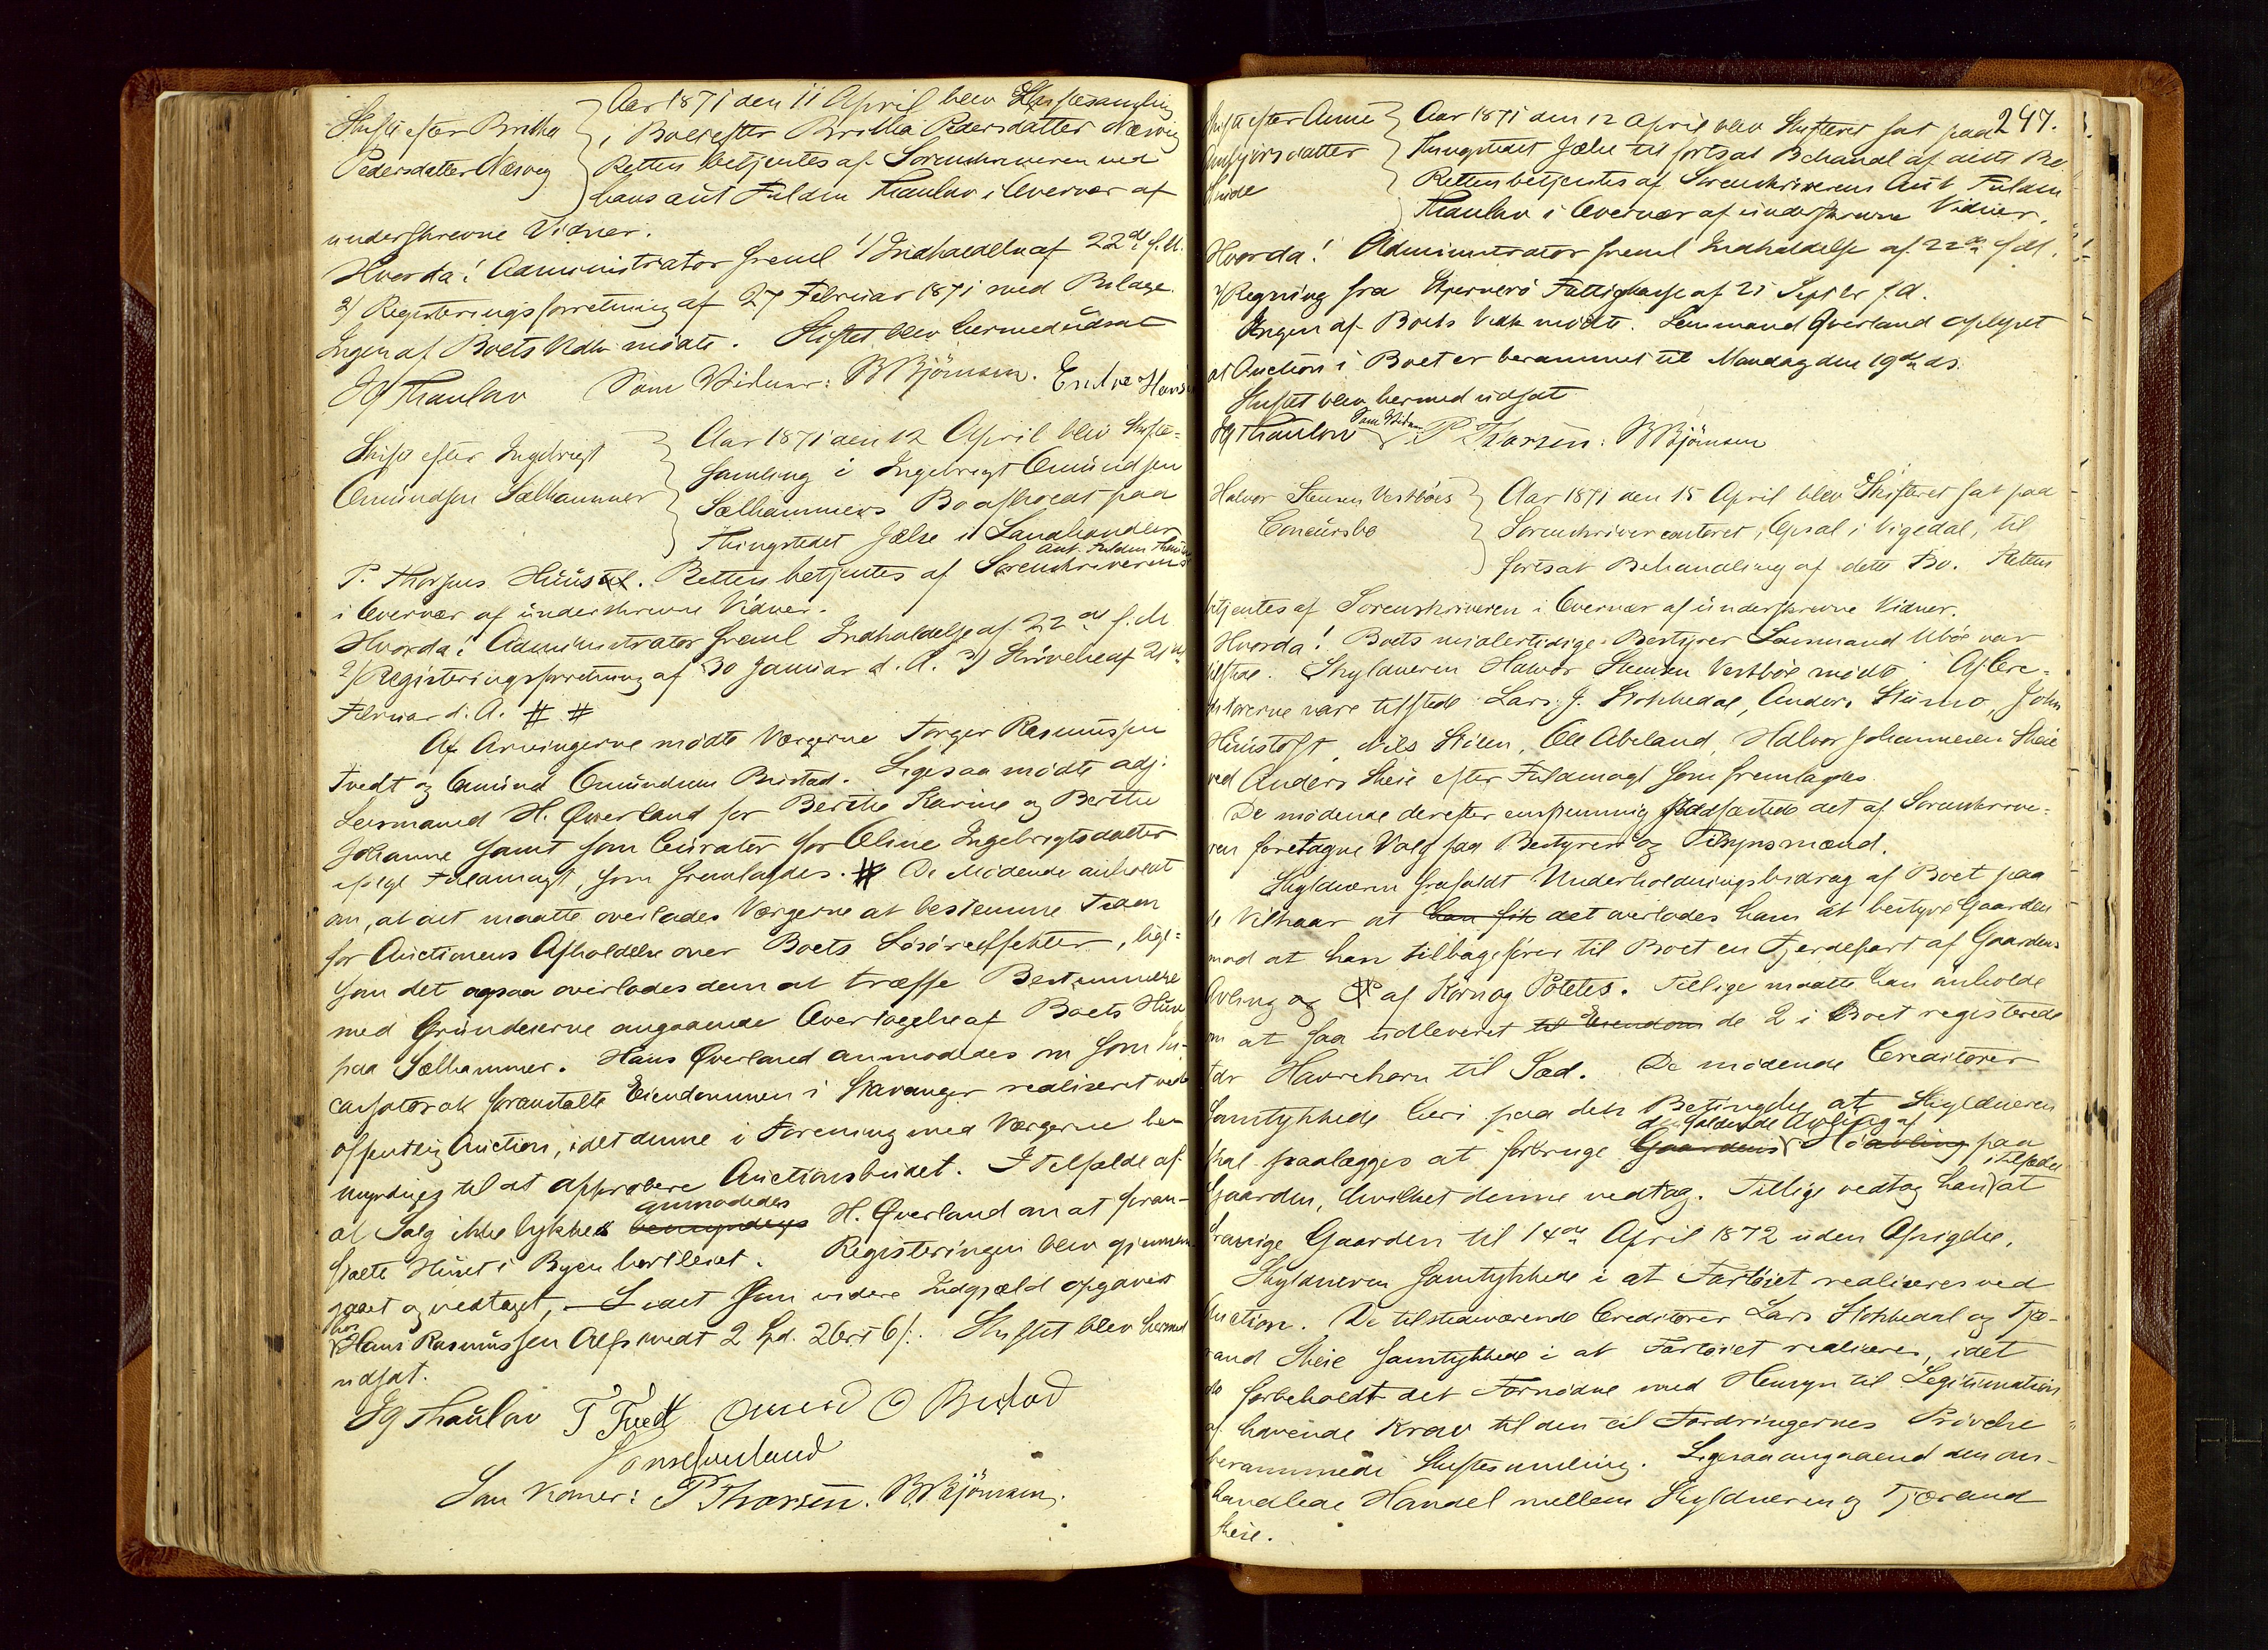 Skifte efter Britha
Pedersdatter Næsvig
Aar 1871 den 11 April blev Skiftesamling
i Boet efter Britha Pedersdatter Næsvig
Retten betjentes af Sorenskriveren ved
hans aut Fuldm Thaulow i Overvær af
underskrevne Vidner.
Hvorda! Administrator freml 1/ Indkaldelse af 22de f. M.
2/ Registeringsforretning af 27 Februar 1871 med Bilage.
Ingen af Boets Vedk mødte. Skiftet blev hermed udsat
Thaulow Som Vidner: B Bjørnsen. Endre Hans
Skifte efter Ingebrigt
Omundsen Sælhammer
Aar 1871 den 12 April blev Skifte-
samling i Ingebrigt Omundsen
Sælhammers Bo afholdt paa
Thingstedet Jælse i Landhandler
P. Thorsens Huus. Retten betjentes af Sorenskriverens aut. Fuldm Thaulow
i Overvær af underskrevne Vidner.
Hvorda! Administrator freml Indkaldelse af 22de f. M
2/ Registeringsforretning af 30 Januar d. A. 3/ Skrivelse af 21de
Februar d. A. # #
Af Arvingerne mødte Værgerne Torger Rasmussen
Tvedt og Omund Omundsen Bustad. Ligesaa mødte adj.
Lensmand H. Qverland for Berthe Karine og Berthe
Johanne samt som Curator for Oline Ingebrigtsdatter
ifølge Fuldmagt, som fremlagdes. # De Mødende anholdt
om, at det maatte overlades Værgerne at bestemme Tiden
for Auctionens Afholdelse over Boets Løsøreeffekter, lige-
som det ogsaa overlodes dem at træffe Bestemmelse
med Grundeierne angaaende Overtagelse af Boets Huse
paa Sælhammer. Hans Qverland anmodedes som In-
cassator at foranstalte Eiendommen i Stavanger realiseret ved
offentlig Auction, idet denne i Forening med Værgerne be-
myndiges til at approbere Auctionsbudet. I Tilfælde af
at Salg ikke lykkes anmodedes H. Qverland om at foran-
stalte Huset i Byen bortleiet. Registeringen blev gjennem-
gaaet og vedtaget, idet som videre Indgjæld opgaves
hos Hans Rasmussen Alfsnedt 2 Spd. 2 Ort 6 /. Skiftet blev hermed
udsat.
Thaulow T Tvedt Omund O Bustad
Hans Qverland
Som Vidner: P Thorsen. B. Bjørnsen.
247.
Skifte efter Anne
Aar 1871 den 12 April blev Skifteret sat paa
Thingstedet Jælse til fortsat Behandl af dette Bo
Retten betjentes af Sorenskriverens Aut Fuldm
Thaulow i Overvær af underskrevne Vidner.
Hvorda! Administrator freml Indkaldelse af 22de f. M.
2/ Regning fra Fattigkasse af 21 Septbr f. A.
Ingen af Boets Vedk mødte. Lensmand Qverland oplyst
at Auction i Boet er berammet til Mandag den 19de ds.
Skiftet blev hermed udsat
Thaulow Som Vidner P Thorsen: B Bjørnsen
Halvor Stensen Vestbøes
Concursbo
Aar 1871 den 15 April blev Skifteret sat paa
Sorenskrivercontoret, Opsal i Vigedal, til
fortsat Behandling af dette Bo. Retten
betjentes af Sorenskriveren i Overvær af underskrevne Vidner.
Hvorda! Boets midlertidige Bestyrer Lensmand Ubøe var
tilstede. Skyldneren Halvor Stensen Vestbøe mødte. Af Cre-
ditorerne vare tilstede Lars J. Stokkedal, Anders Stumo, John
Huustoft, Nils Skien, Ole Abeland, Halvor Johannesen Skeie
ved Anders Skeie efter Fuldmagt som fremlagdes.
De mødende derefter enstemmig stadfæstede det af Sorenskrive-
ren foretagne Valg paa Bestyrere og Tilsynsmænd.
Skyldneren frafaldt Underholdningsbidrag af Boet paa
de Vilkaar at han fik det overlodes ham at bestyre Gaarden
mod at han tilbagefører til Boet en Fjerdepart af Gaardens
Avling og af Korn og Potetes. Tillige maatte han anholde
om at faa udleveret til Eiendom de 2 i Boet registerede
Tdr Havrekorn til Sæd. De mødende Creditorer
samtykkede heri paa den Betingelse at Skyldneren
skal paalægges at forbruge Gaardens Høavling paa
Gaarden, hvilket denne vedtog. Tillige vedtog han at
fravige Gaarden til 14de April 1872 uden Opsigelse.
Skyldneren samtykkede i at Fartøiet realiseres ved
Auction. De tilstedeværende Creditorer Lars Stokkedal og Tjæ-
rand Skeie samtykkede i at Fartøiet realiseres, idet
de forbeholdt det Fornødne med Hensyn til Legitimation
af havende Krav til den til Fordringernes Prøvelse
berammede Skiftesamling. Ligesaa angaaende den om-
handlede Handel mellem Skyldneren og Tjærand
Skeie.